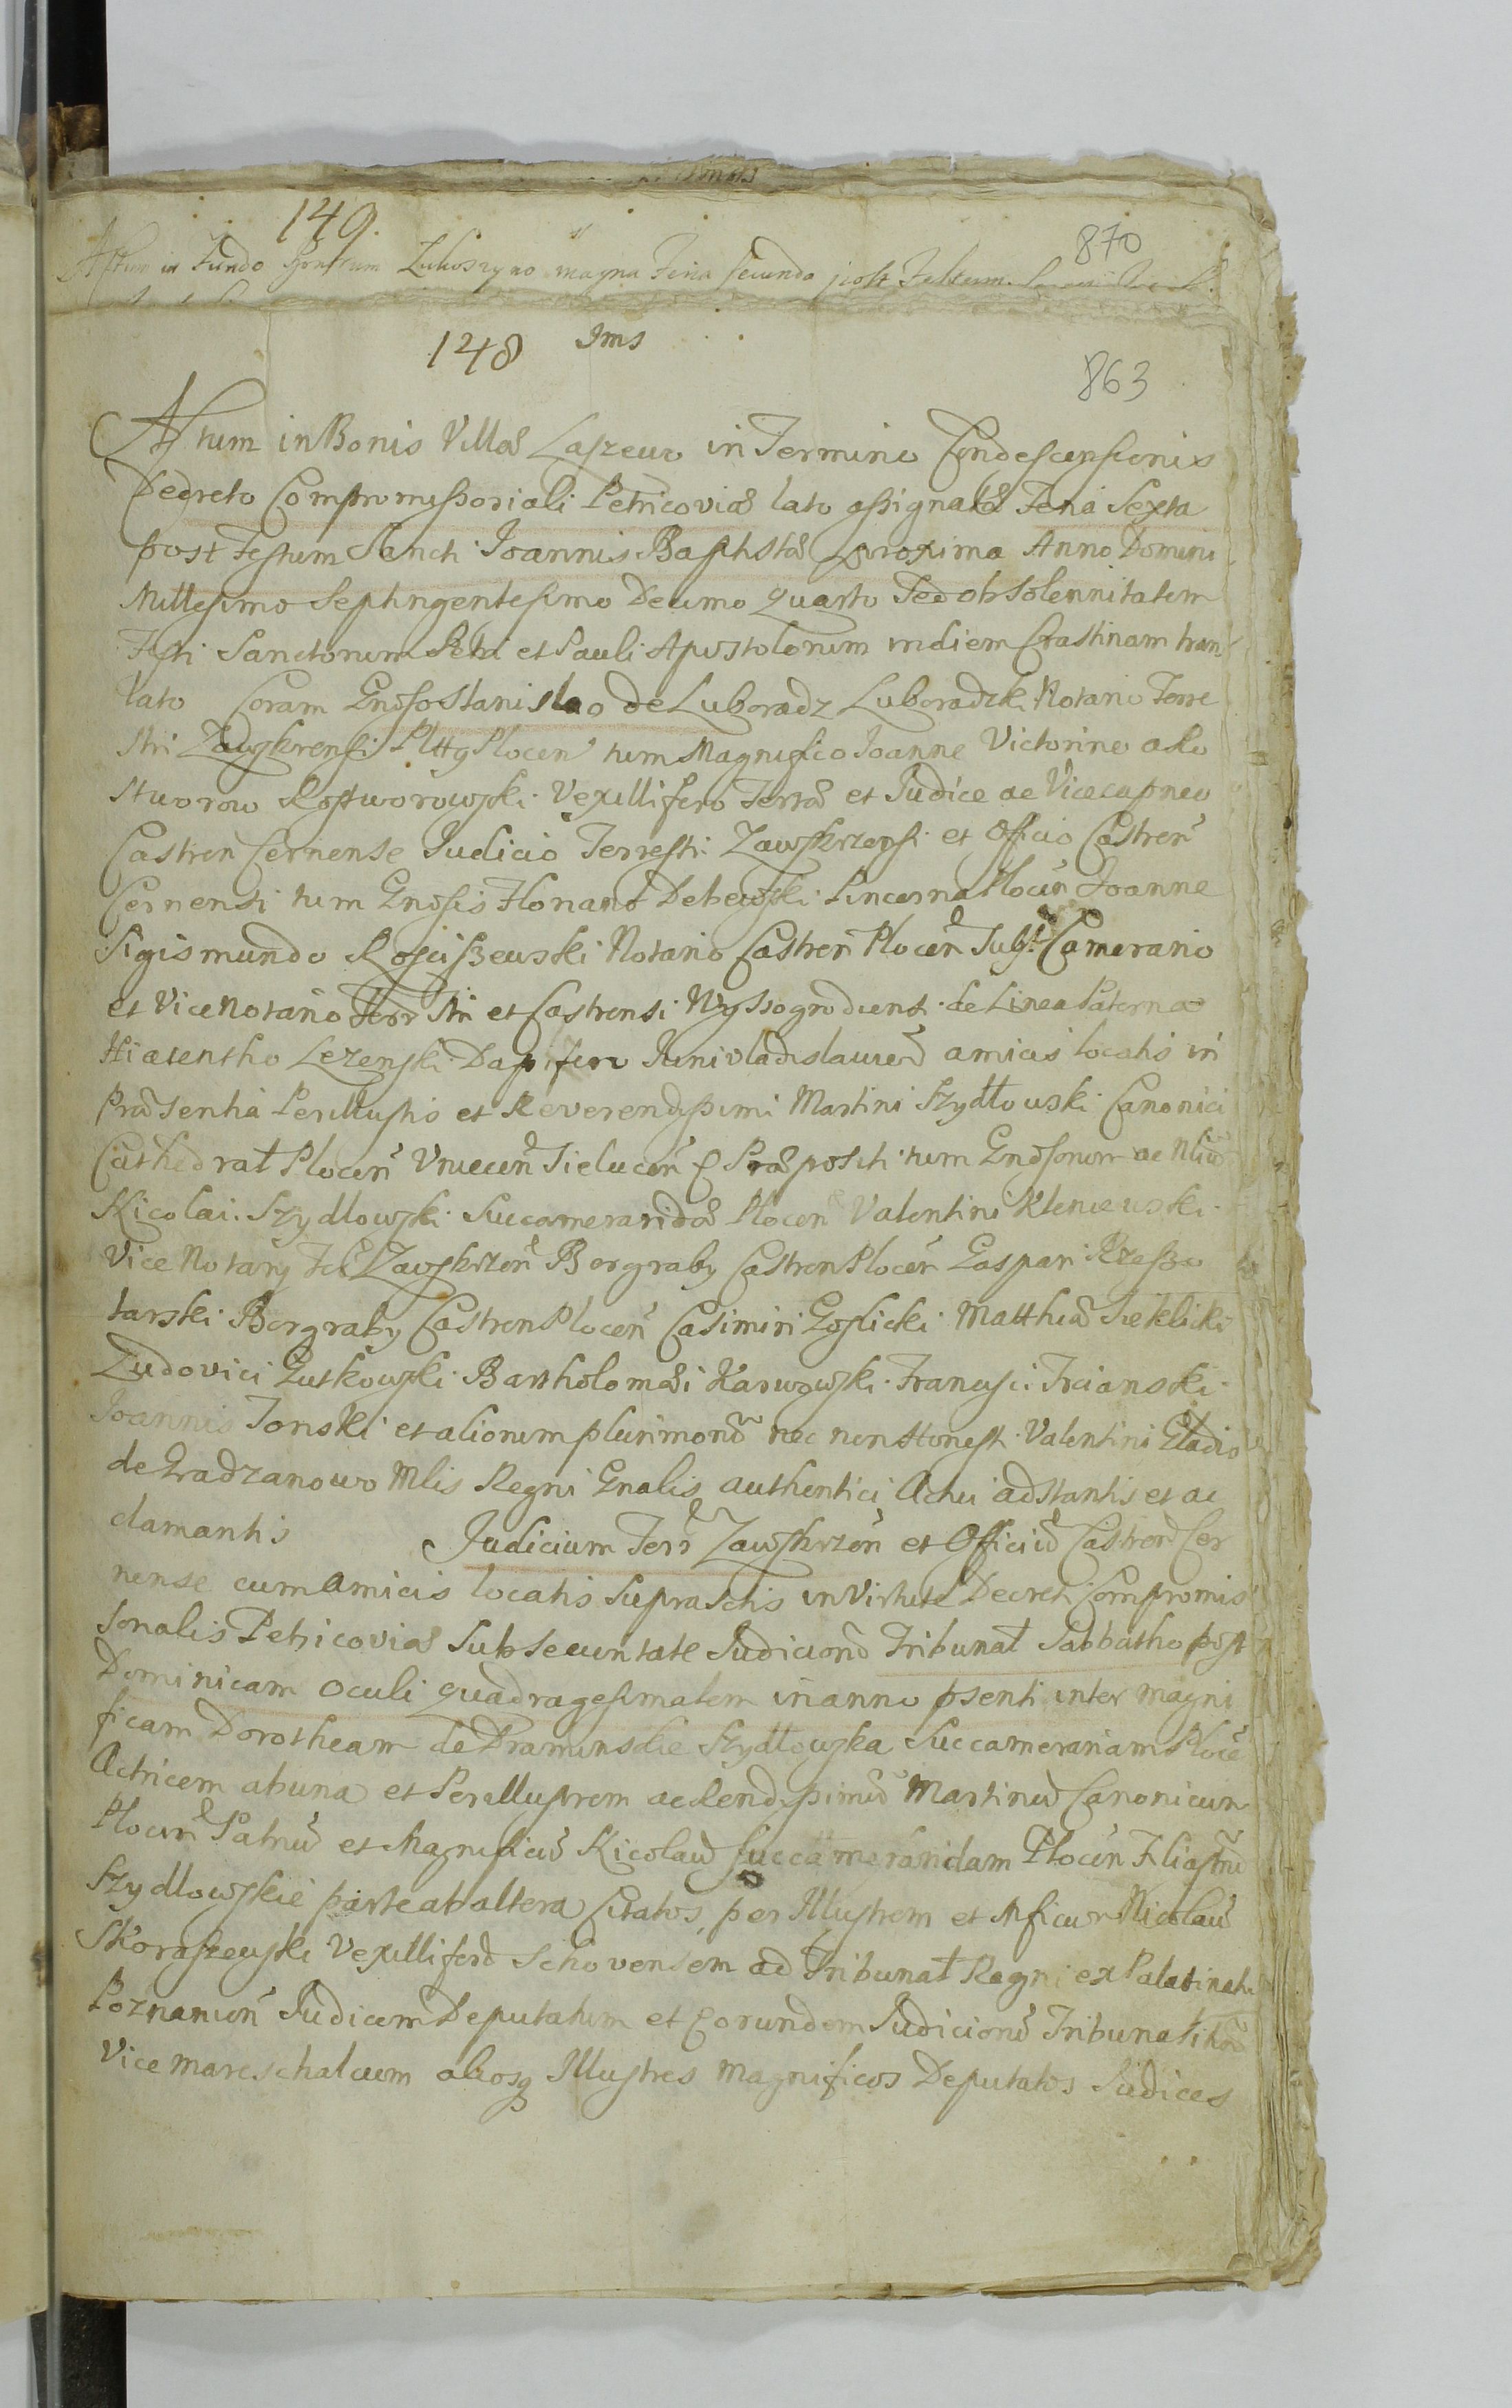 149.
870
Actum in Fundo Bonorum Lukoszyno magna Feria secunda post Festum
148 Ims
863
Actum in Bonis Villæ Laszewo in Termino Condescensionis
Decreto Compromissoriali Petricoviæ lato assignatæ Feria Sexta
post Festum Sancti Joannis Baptistæ proxima Anno Domini
Millesimo Septingentesimo Decimo Quarto Sed ob Solennitatem
Festi Sanctorum Petri et Pauli Apostolorum in diem Crastinam tran
lato Coram Gnoso Stanislao de Luboradz Luboradzki Notario Terre
stri Zawskrensi Plttg Plocen tum Magnifico Joanne Victorino a Ro
stworow Rostworowski Vexillifero Terræ et Judice ac Vicecapneo
Castren Cernense Judicio Terrestri Zawskrzensi et Officio Castren
Cernensi tum Gnosis Floriano Debewski Pincerna Plocen Joanne
Sigismundo Rosciszewski Notario Castren Plocen Camerario
et Vice Notario Terr Stri et Castrensi Wyssogrodiensi de Linea Paterna
Hiacentho Lezenski Dapifero Junivladislavien amicis locatis in
Præsentia Perillustris et Reverendissimi Martini Szydłowski Canonici
Cathedrał Plocen Vniecen Sielucen Præpositi tum Gnosorum ac
Nicolai Szydlowski Succameraridæ Plocen Valentini Kleniewski
Vice Notarÿ Zawskrzen Borgraby Castren Plocen Gaspari Rzeszo
tarski Borgraby Castren Plocen Casimiri Goslicki Matthiæ Sieklicki
Ludovici Gutkowski Bartholomæi Karwowski Francisci Trcianski
Joannis Jonski et aliorum plurimorum nec non Honesti Valentini Gładis
de Gradzanowo Mlis Regni Gnalis authentici Actui adstantis et ac
clamantis Judicium Terr Zawskrzen et Officiu Castren Cer
nense cum Amicis locatis Suprascriptis in Virtute Decreti Compromis
sorialis Petricoviæ Sub Securitate Judiciorum Tribunał Sabbatho post
Dominicam Oculi quadragesimalem in anno psenti inter Magni
ficam Dorotheam de Draminskie Szydłowska Succamerariam Ploce
Actricem ab una et Perillustrem ac Rendissimu Martinu Canonicum
Plocen Patruu et Magnificu Nicolau Succameraridam Plocen Filiastru
Szydlowskie parte ab altera Citatos, per Illustrem et Mficum Nicolau
Skoraszewski Vexilliferu Schovensem ad Tribunał Regni ex Palatinatu
Poznanien Judicem Deputatum et Eorundem Judicioru Tribunalitioru
Vice mareschalcum aliosq Illustres Magnificos Deputatos Judices